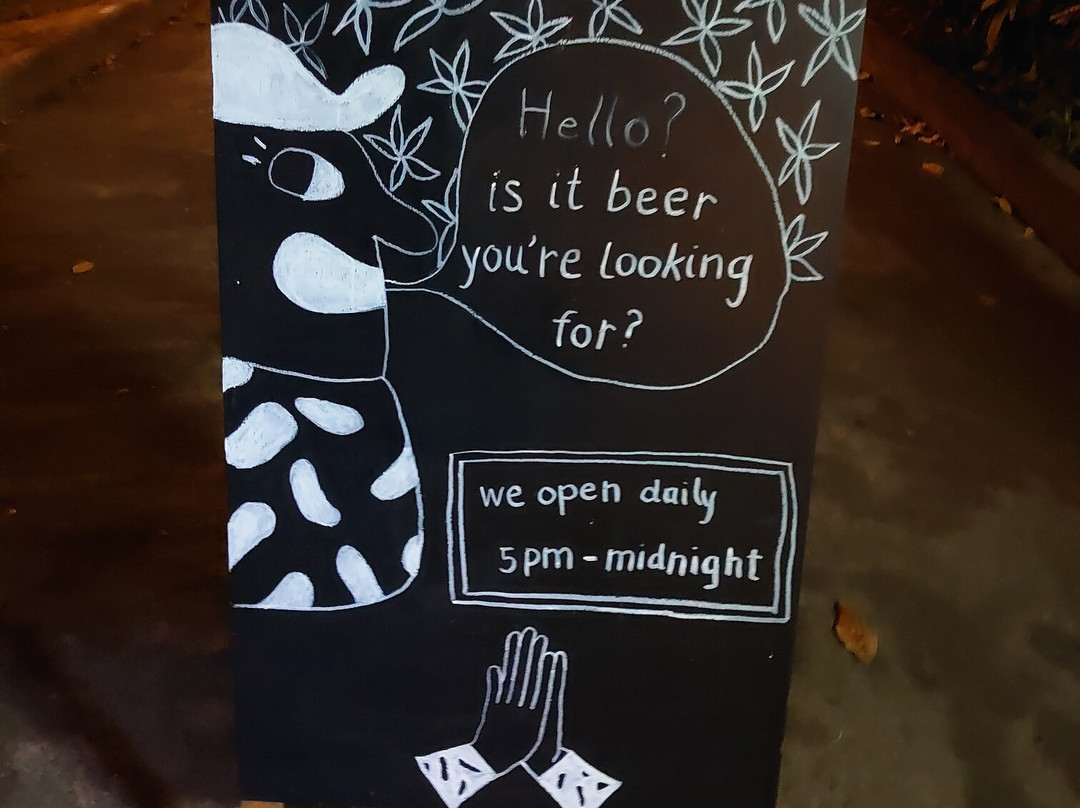 Hello?
is it beer
you're looking
for?
we open daily
5pm - midnight